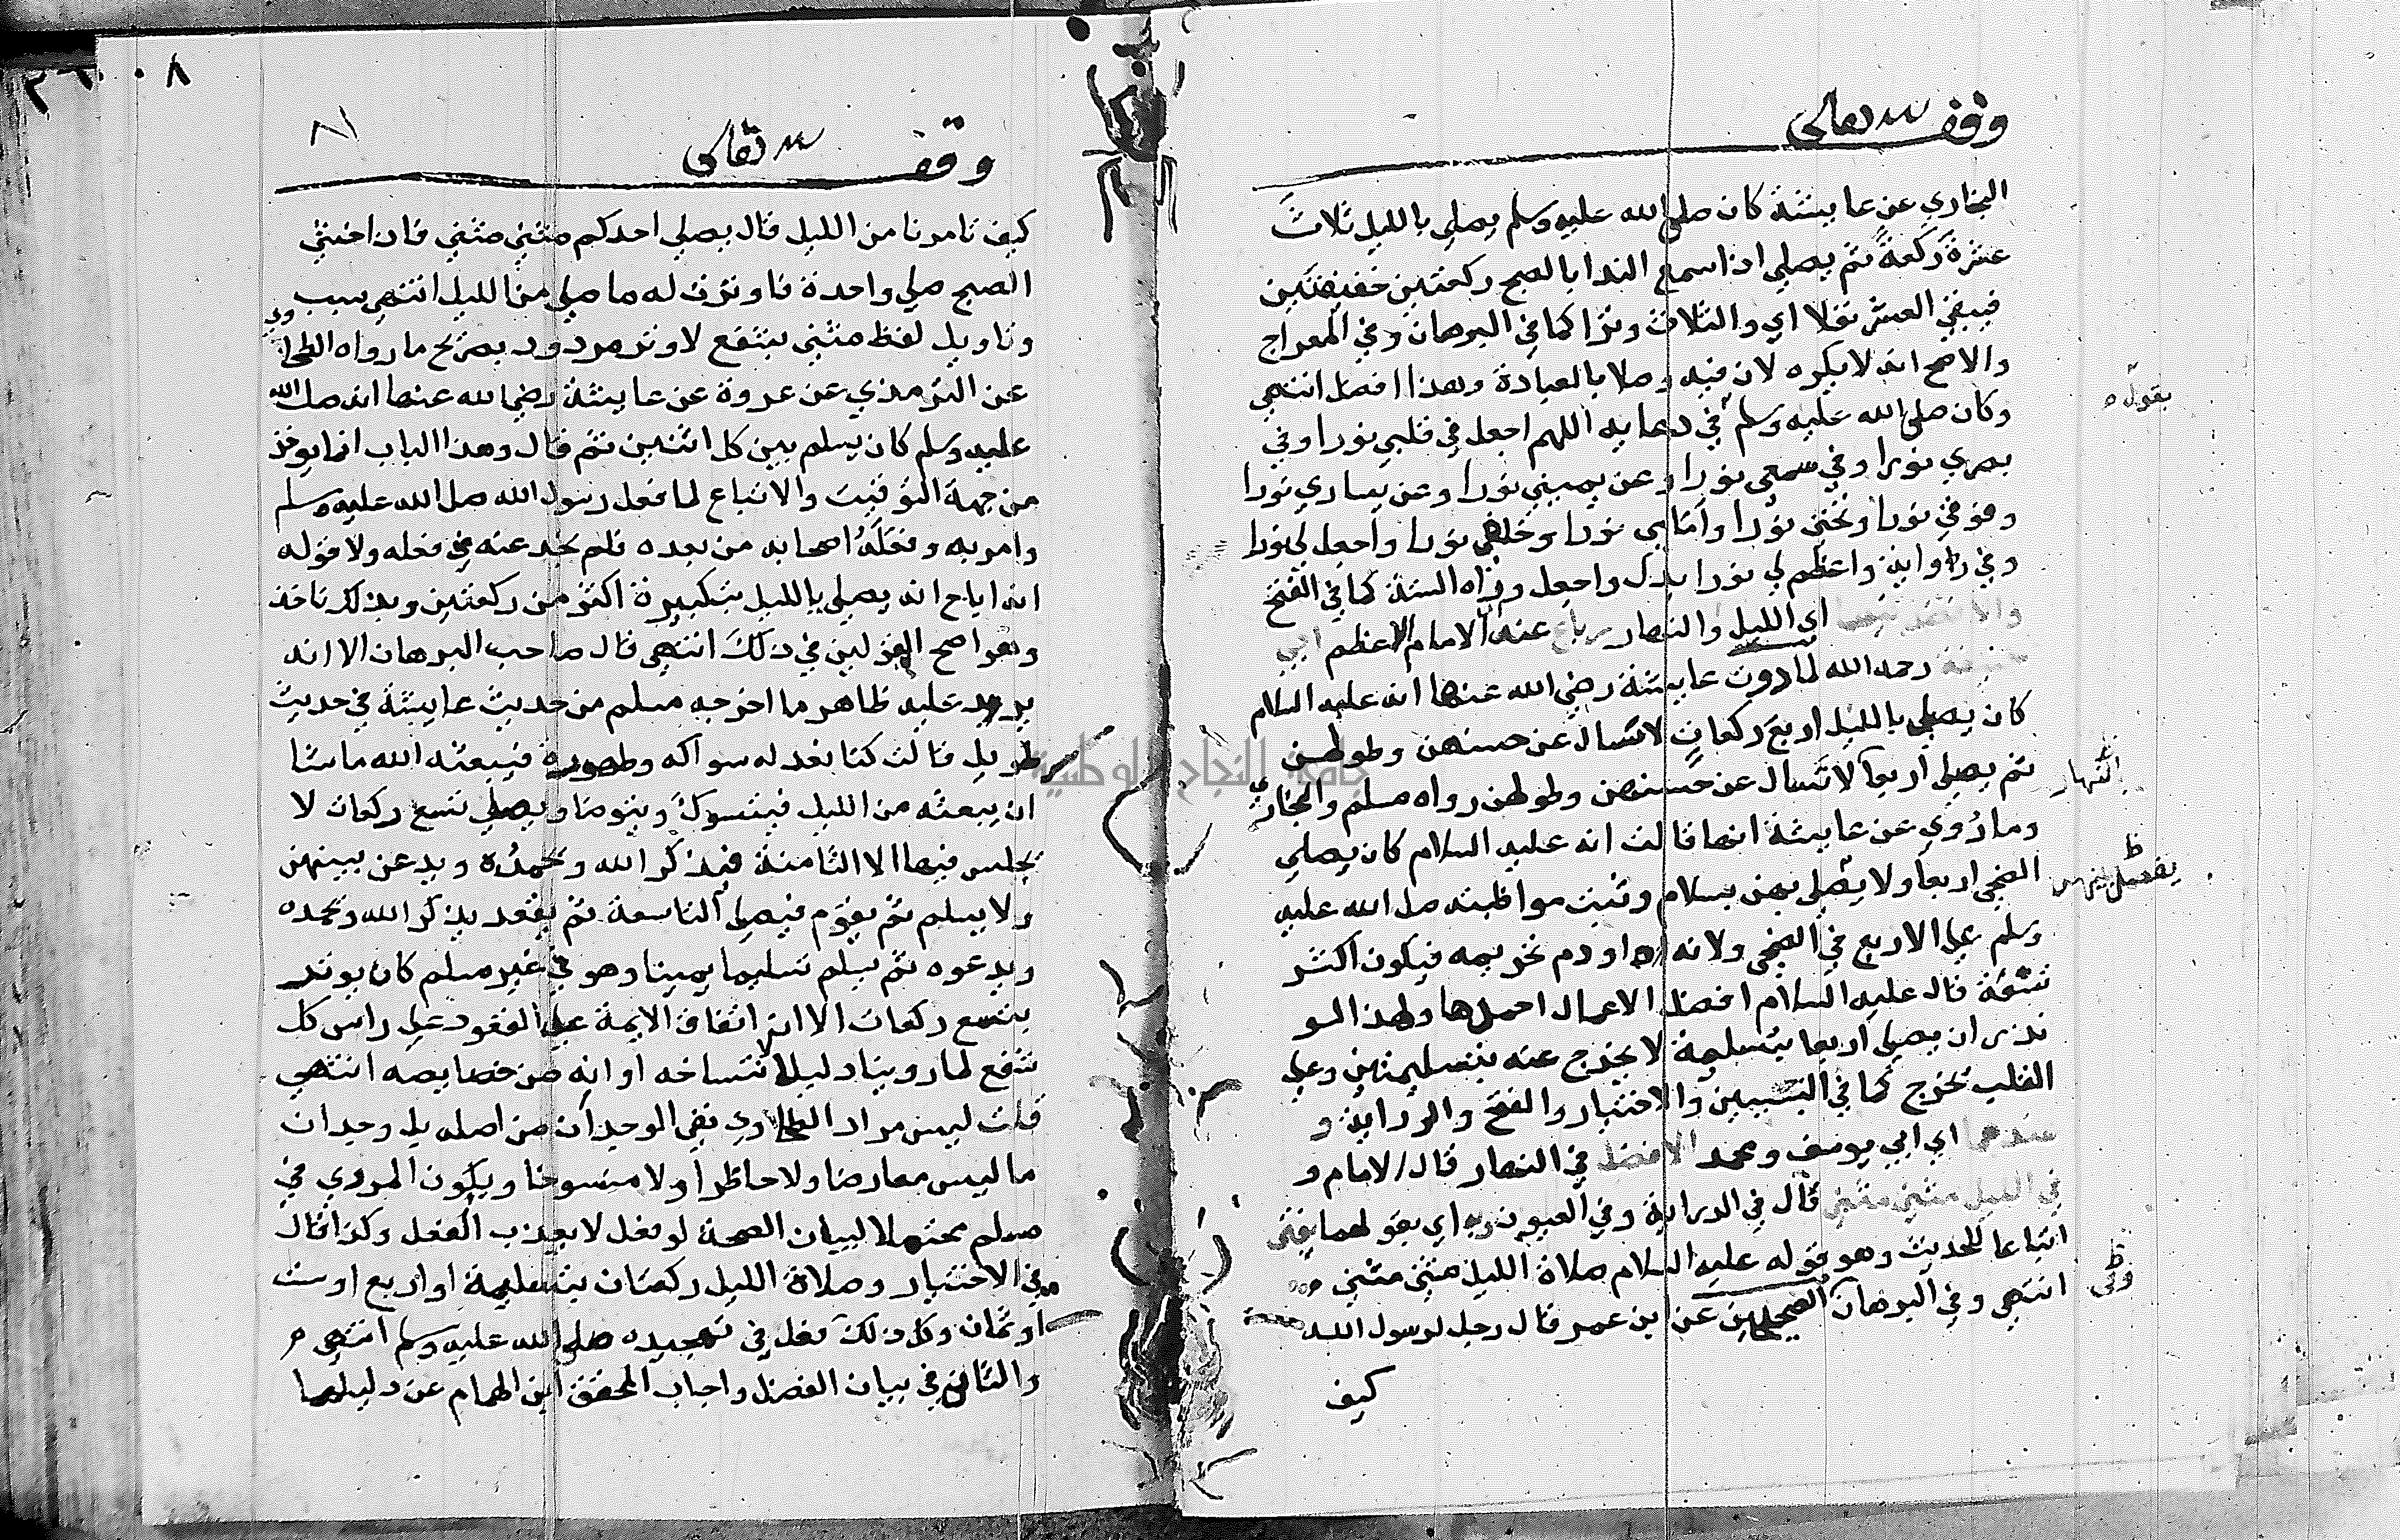 وقف لله تعالى
البخاري عن عايشة كان صلى الله عليه وسلم يصلي بالليل ثلاث
عشرة ركعة ثم يصلي اذا سمع الندا بالصبح ركعتين خفيفتين
فيبقي العشر نفلا اي والثلاث وترا كما في البرهان وفي المعراج
والاصح انه لا يكره لان فيه وصلا بالعبادة وهذا افضل انتهى
وكان صلى الله عليه وسلم في دعايه اللهم اجعل في قلبي نورا وفي
يقول
بصري نورا وفي سمعي نورا وعن يميني نورا وعن يساري نورا
وفوقي نورا وتحتي نورا وأمامي نورا وخلفي نورا واجعل لي نورا
وفي رواية واعظم لي نورا بدل واجعل ورواه الستة كما في الفتح
والافضل فيهما اي الليل والنهار رباع عند الامام الاعظم ابي
حنيفة رحمه الله لما روت عايشة رضي الله عنها انه عليه السلام
كان يصلي بالليل اربع ركعات لا تسال عن حسنهن وطولهن
ثم يصلي اربعا لا تسال عن حسنهن وطولهن رواه مسلم والبخاري
النهار
وما رُوي عن عايشة انها قالت انه عليه السلام كان يصلي
الضحى اربعا ولا يفصل بينهن بسلام وثبت مواظبته صلى الله عليه
يفصل بينهن
وسلم على الاربع في الضحى ولانه ادوم تحريمه فيكون اكثر
مشقة قال عليه السلام افضل الاعمال احمزها ولهذا لو
نذر ان يصلي اربعا بتسليمة لا يخرج عنه بتسليمتين وعلى
القلب يخرج كما في التبيين والاختيار والفتح والدراية و
عندهما اي ابي يوسف ومحمد الافضل في النهار قال الامام و
في الليل مثنى مثنى قال في الدراية وفي العيون وبه اي بقولهما يفتى
اتباعا للحديث وهو قوله عليه السلام صلاة الليل مثنى مثنى
انتهى وفي البرهان الصحيحين عن ابن عمر قال رجل لرسول الله
وفي
كيف
وقف لله تعالى
كيف تامرنا من الليل قال يصلي احدكم مثنى مثنى فان اخشى
الصبح صلى واحدة فاوترت له ما صلى من الليل انتهى بسبب
وتاويل لفظ مثنى بشفع لا وتر مردود بصريح ما رواه الطحاوي
عن الترمذي عن عروة عن عايشة رضي الله عنها انه صلى الله
عليه وسلم كان يسلم بين كل اثنين ثم قال وهذا الباب انما يوخذ
من جهة التوقيت والاتباع لما فعل رسول الله صلى الله عليه وسلم
وامر به وفعلَهُ اصحابه من بعده فلم نجد عنه في فعله ولا قوله
انه اباح انه يصلي بالليل بتكبيرة اكثر من ركعتين وبذلك ناخذ
وهو اصح القولين في ذلك انتهى قال صاحب البرهان الا انه
يرد عليه ظاهر ما اخرجه مسلم من حديث عايشة في حديث
طويل قالت كنا نعد له سواكه وطهوره فيبعثه الله ما شا
ان يبعثه من الليل فيتسوك ويتوضا ويصلي تسع ركعات لا
يجلس فيها الا الثامنة فيذكر الله ويحمدُه ويدعو بينهن
ولا يسلم ثم يقوم فيصلي التاسعة ثم يقعد يذكر الله ويحمده
ويدعوه ثم يسلم تسليما يمينا وهو في غير مسلم كان يوتر
بتسع ركعات الا ان اتفاق الايمة على القعود على راس كل
شفع لما روينا دليل لانتساخه او انه من خصايصه انتهى
قلت ليس مراد الطحاوي نفي الوجدان من اصله بل وجدان
ما ليس معارضا ولا حاظرا ولا منسوخا ويكون المروي في
مسلم محتملا لبيان الصحة لو فعل لا يعذب الفعل وكذا قال
في الاختيار وصلاة الليل ركعتان بتسليمة او اربع او ست
او ثمان وكل ذلك نقل في تهجيده صلى الله عليه وسلم انتهى
والثاني في بيان الفضل واجاب المحقق ابن الهمام عن دليلهما
جامعة النجاح الوطنية